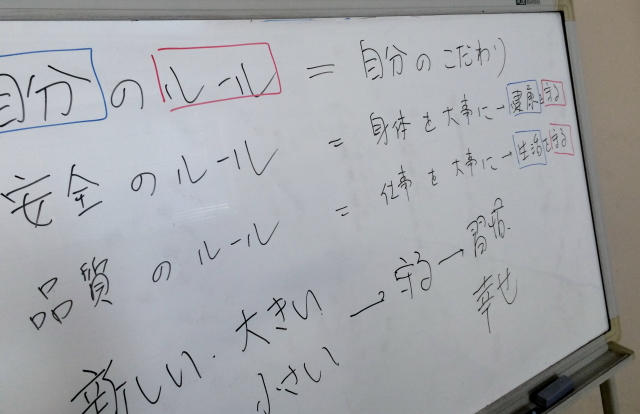 自分 の ルール = 自分のこだわり
安全 の ルール = 身体を大事に→健康を守る
品質 の ルール = 仕事を大事に→生活を守る
新しい.大きい → 守る → 習慣
小さい 幸せ